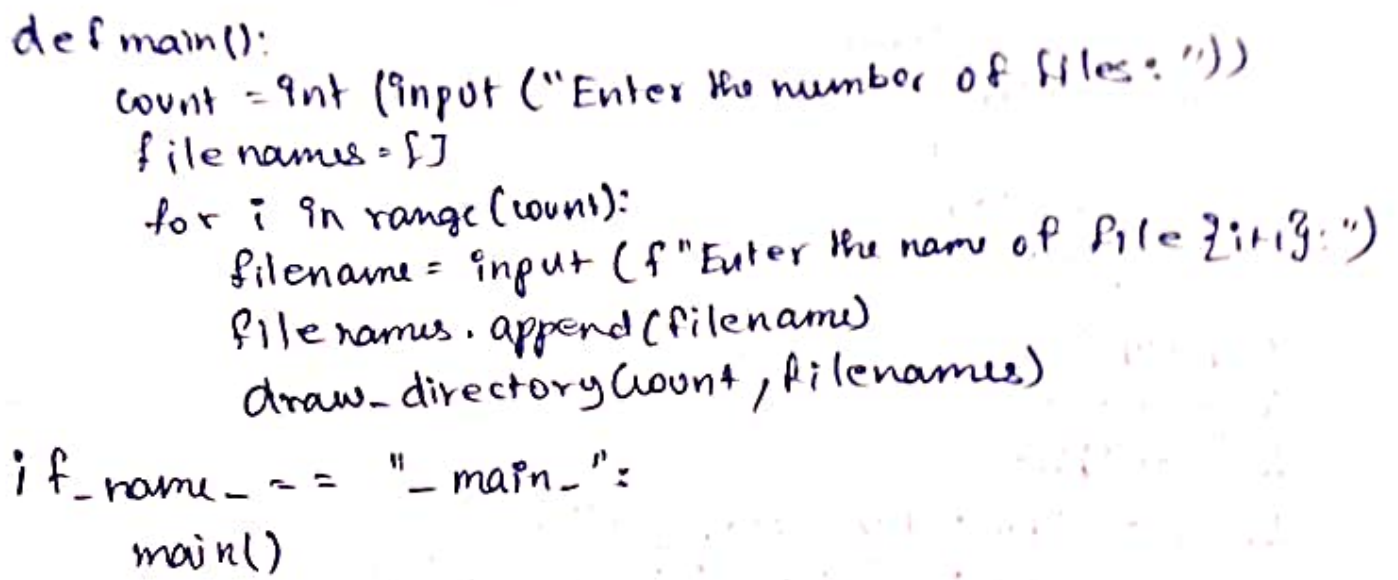 def main():
    count = int (input ("Enter the number of files: "))
    filenames = []
    for i in range (count):
        filename = input (f"Enter the name of file {i+1}: ")
        filenames. append (filename)
        draw_directory (count, filenames)
if _name_ == "_main_":
    main()